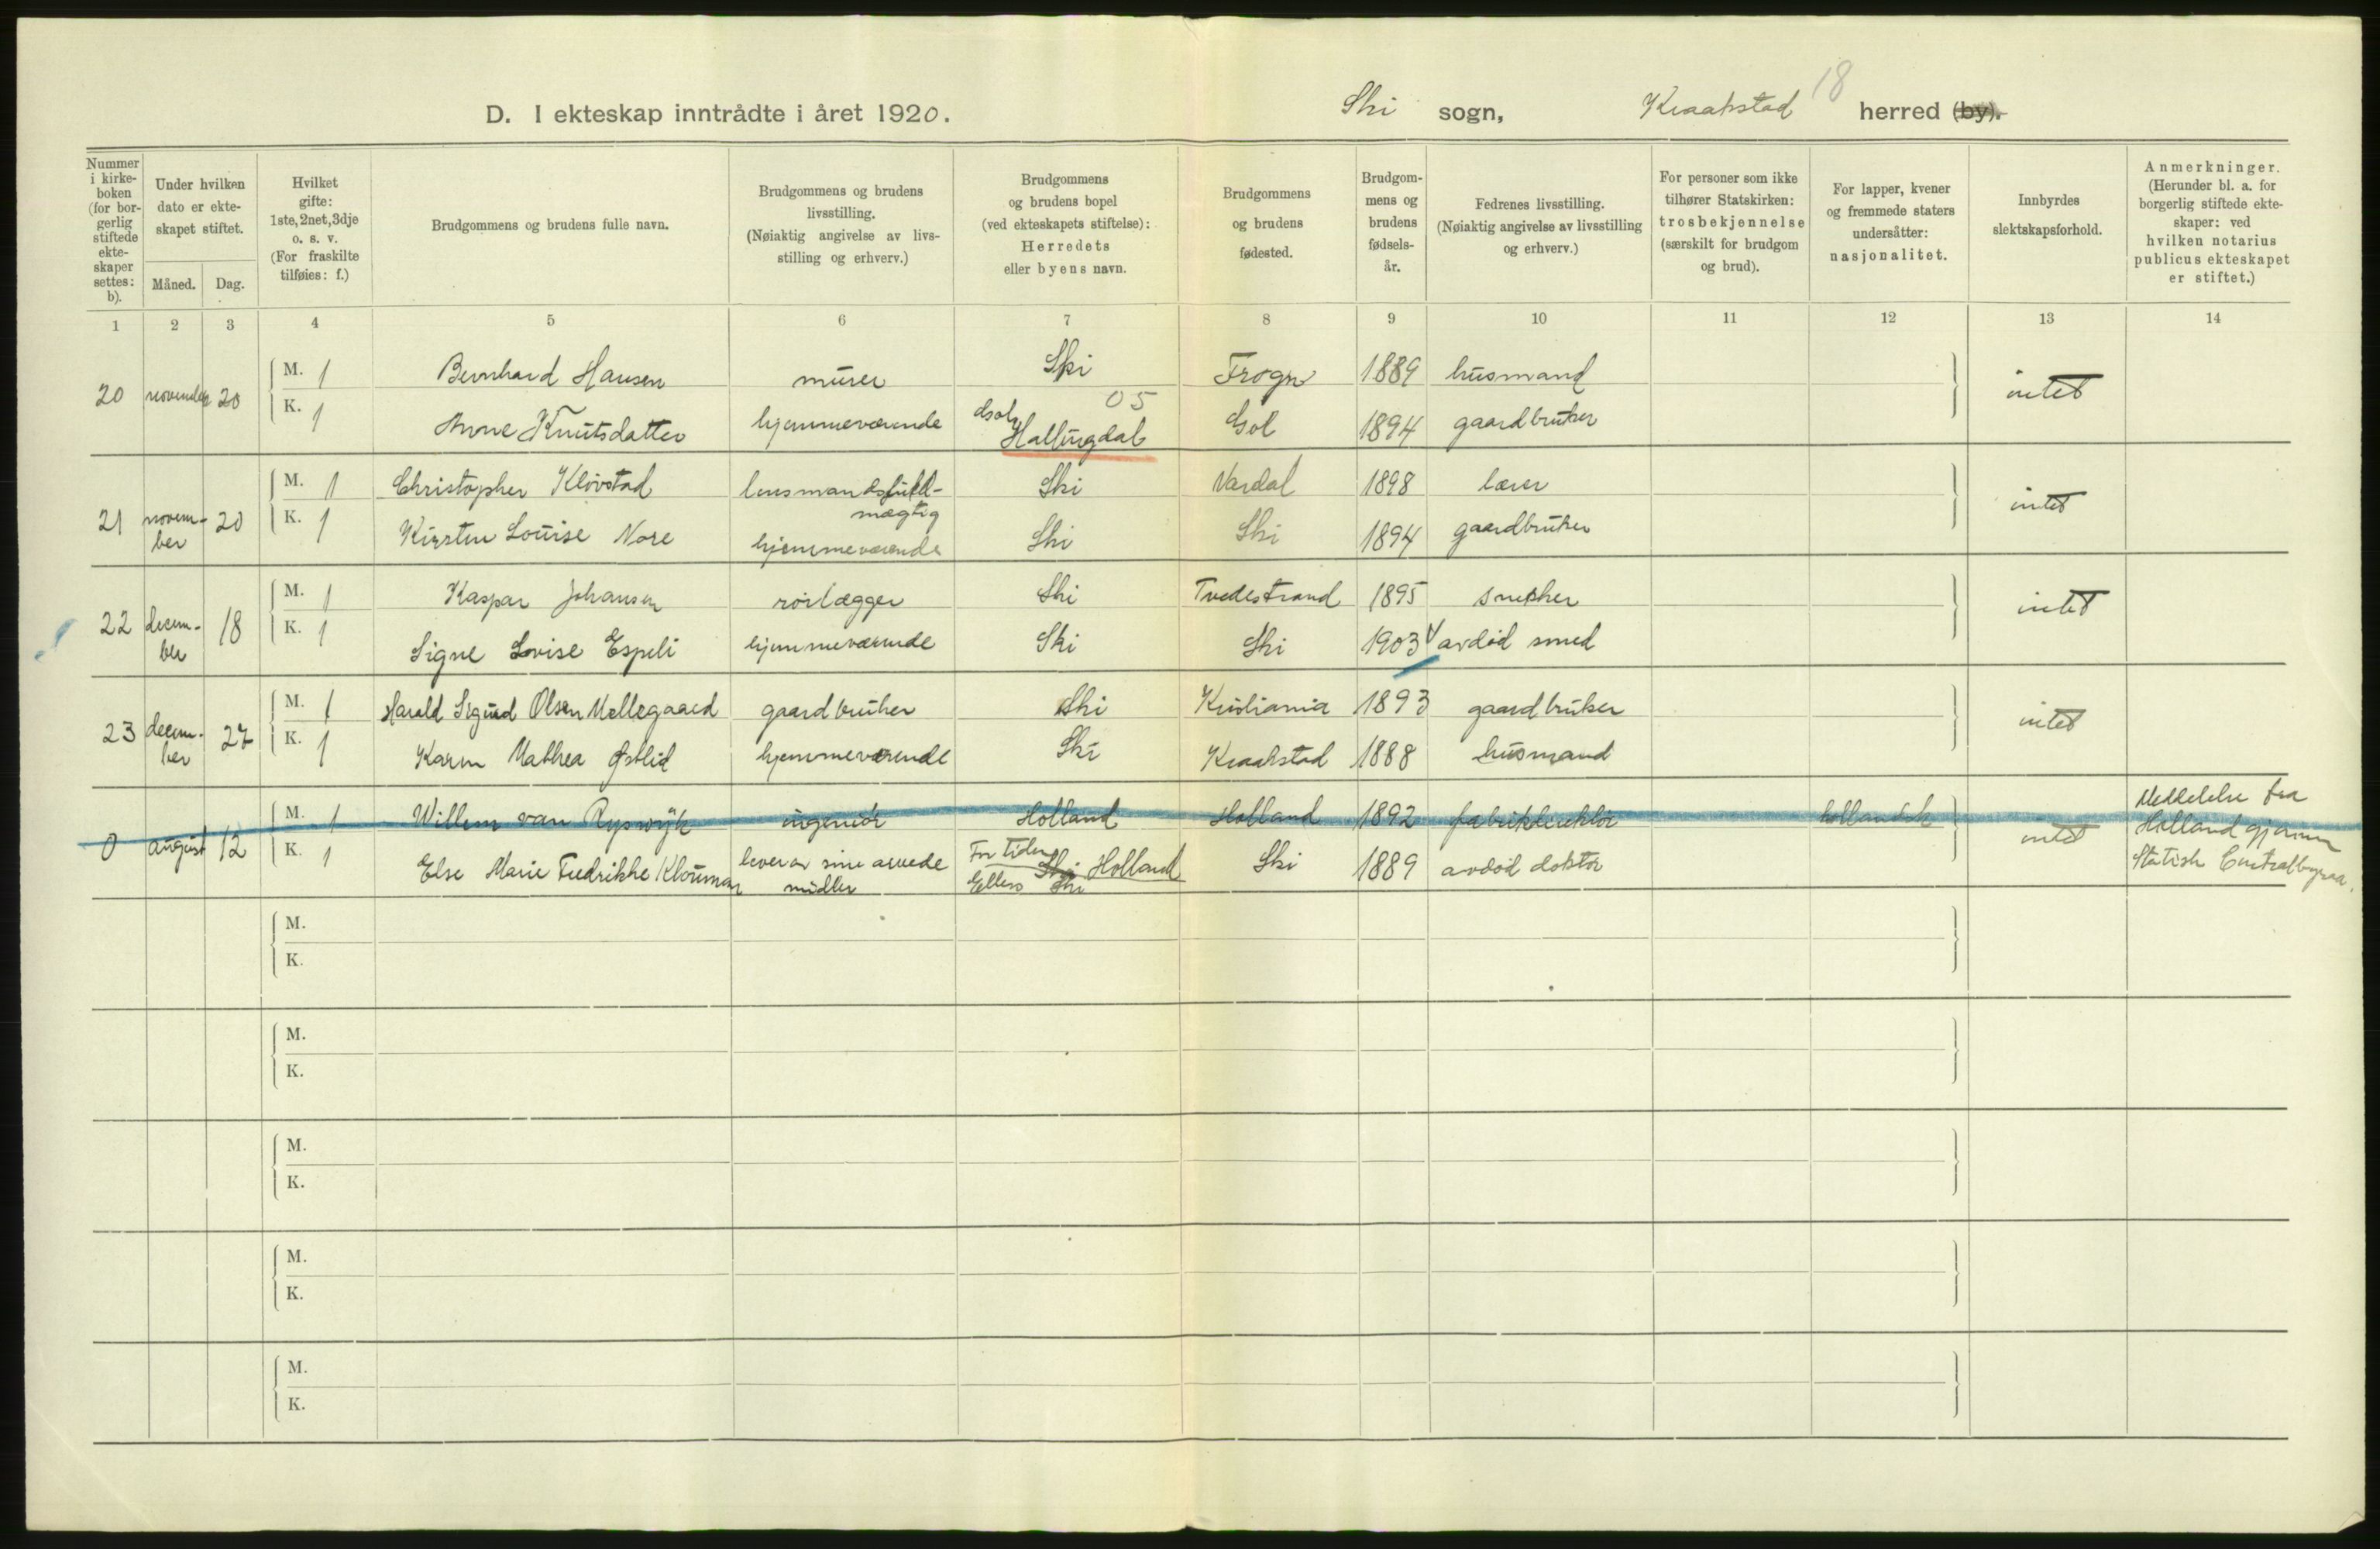 18
D. I ekteskap inntrådte i året 1920. Ski sogn, Kraakstad herred (by).
Nummer i kirkeboken (for borgerlig stiftede ekteskaper settes: b).
Under hvilken dato er ekteskapet stiftet.
Måned. Dag.
Hvilket gifte: 1ste, 2net, 3dje o. s. v. (For fraskilte tilføies: f.)
Brudgommens og brudens fulle navn.
Brudgommens og brudens livsstilling. (Nøiaktig angivelse av livsstilling og erhverv.)
Brudgommens og brudens bopel (ved ekteskapets stiftelse): Herredets eller byens navn.
Brudgommens og brudens fødested.
Brudgommens og brudens fødselsår.
Fedrenes livsstilling. (Nøiaktig angivelse av livsstilling og erhverv.)
For personer som ikke tilhører Statskirken: trosbekjennelse (særskilt for brudgom og brud).
For lapper, kvener og fremmede staters undersåtter: nasjonalitet.
Innbyrdes slektskapsforhold.
Anmerkninger. (Herunder bl. a. for borgerlig stiftede ekteskaper: ved hvilken notarius publicus ekteskapet er stiftet.)
1 2 3 4 5 6 7 8 9 10 11 12 13 14
20 november 20 M. 1 Bernhard Hansen murer Ski Frogn 1889 husmand intet
05
K. 1 Anne Knutsdatter hjemmeværende Hallingdal Gol 1894 gaardbruker
21 november 20 M. 1 Christopher Kløvstad lensmandsfuldmægtig Ski Vardal 1898 lærer intet
K. 1 Kirsten Louise Nore hjemmeværende Ski Ski 1894 gaardbruker
22 december 18 M. 1 Kaspar Johansen rørlægger Ski Tvedestrand 1895 snekker intet
K. 1 Signe Lovise Espeli hjemmeværende Ski Ski 1903 avdød smed
23 december 27 M. 1 Harald Sigurd Olsen Møllegaard gaardbruker Ski Kristiania 1893 gaardbruker intet
K. 1 Karen Mathea Østlid hjemmeværende Ski Kraakstad 1888 husmand
0 august 12 M. 1 Willem van Ryswÿk ingeniør Holland Holland 1892 fabrikdirektør hollandsk intet Meddelelse fra
Holland gjennem
Statisk Centralbyraa.
K. 1 Else Marie Fredrikke Klouman lever av sine arvede midler For tiden Ski Holland Ellers Ski Ski 1889 avdød doktor
M.
K.
M.
K.
M.
K.
M.
K.
M.
K.